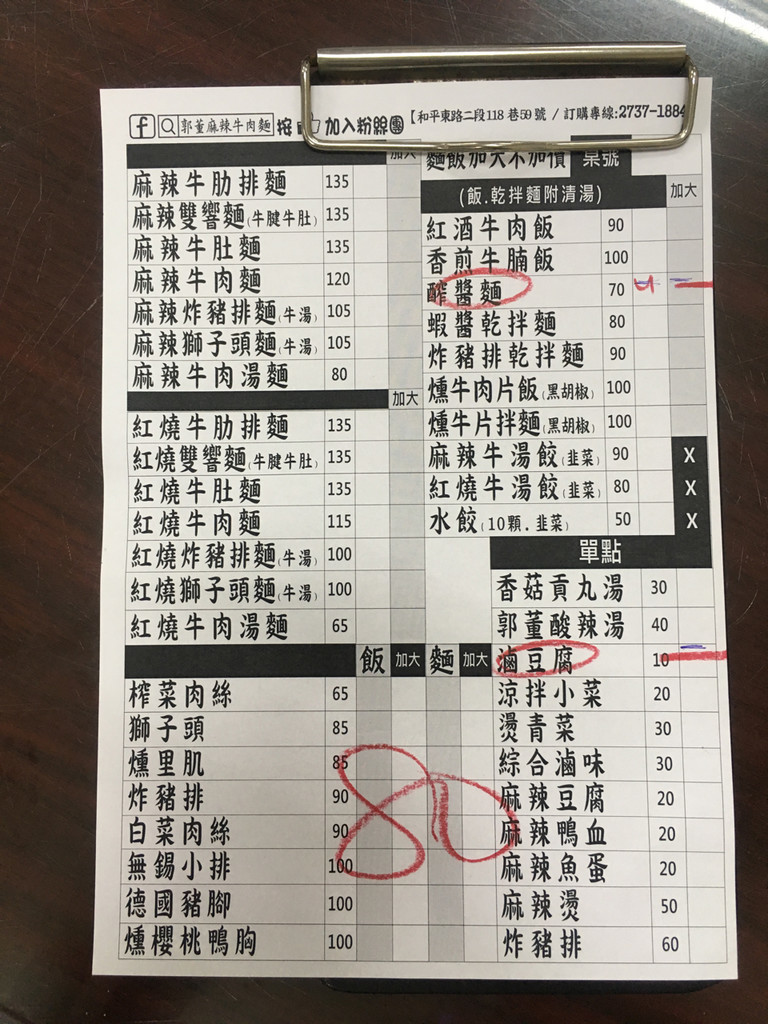 f 郭董麻辣牛肉麵 按 加入粉絲團【和平東路二段118巷59號 / 訂購專線:2737-1884
加大
麻辣牛肋排麵 135
麻辣雙響麵(牛腱牛肚) 135
麻辣牛肚麵 135
麻辣牛肉麵 120
麻辣炸豬排麵(牛湯) 105
麻辣獅子頭麵(牛湯) 105
麻辣牛肉湯麵 80
加大
紅燒牛肋排麵 135
紅燒雙響麵(牛腱牛肚) 135
紅燒牛肚麵 135
紅燒牛肉麵 115
紅燒炸豬排麵(牛湯) 100
紅燒獅子頭麵(牛湯) 100
紅燒牛肉湯麵 65
飯 加大 麵 加大
榨菜肉絲 65
獅子頭 85
燻里肌 85
炸豬排 90
白菜肉絲 90
無錫小排 100
德國豬腳 100
燻櫻桃鴨胸 100
麵飯加大不加價 桌號
(飯.乾拌麵附清湯) 加大
紅酒牛肉飯 90
香煎牛腩飯 100
醡醬麵 70
蝦醬乾拌麵 80
炸豬排乾拌麵 90
燻牛肉片飯(黑胡椒) 100
燻牛片拌麵(黑胡椒) 100
麻辣牛湯餃(韭菜) 90 X
紅燒牛湯餃(韭菜) 80 X
水餃(10顆.韭菜) 50 X
單點
香菇貢丸湯 30
郭董酸辣湯 40
滷豆腐 10
涼拌小菜 20
燙青菜 30
綜合滷味 30
麻辣豆腐 20
麻辣鴨血 20
麻辣魚蛋 20
麻辣燙 50
炸豬排 60
80